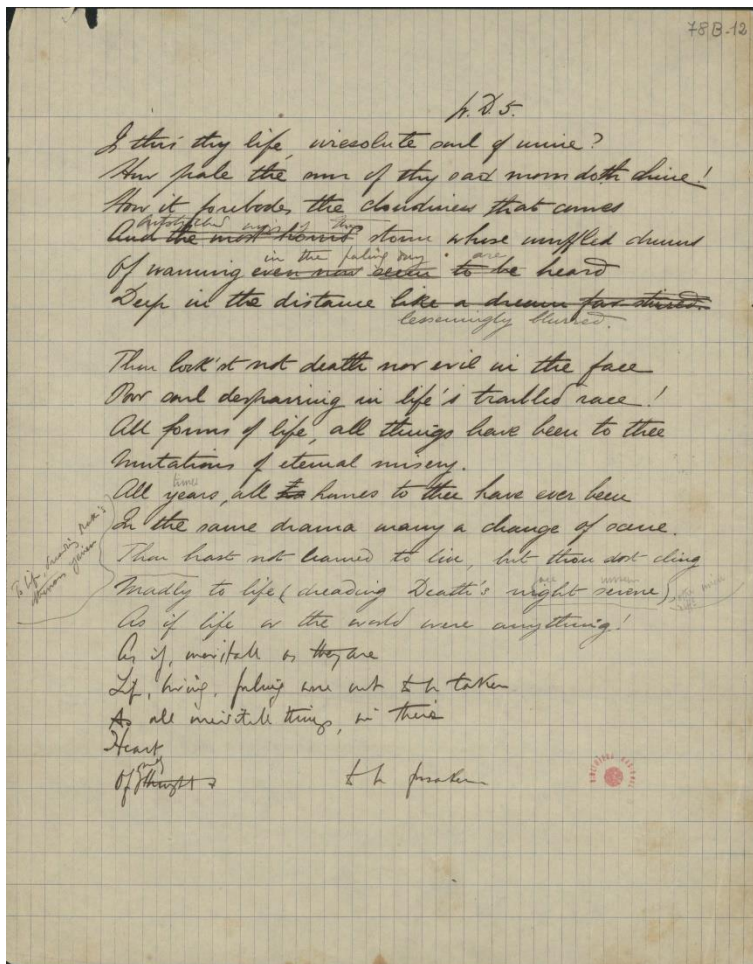 78B-12
Is this thy life, irresolute soul of mine?
How pale the sun of thy sad morn doth shine!
How it forebodes the cloudiness that comes
And the most horrid storm whose muffled drums
in the paling day are
Of warning even now seem to be heard
Deep in the distance like a dream far stirred.
lesseningly blurred.
Thou look'st not death nor evil in the face
Poor soul despairing in life's troubled race!
All forms of life, all things have been to thee
Mutations of eternal misery.
times
All years, all homes to thee have ever been
In the same drama many a change of scene.
Thou hast not learned to live, but thou dost cling
Madly to life (dreading Death's night serene)
As if life or the world were anything!
As if, inevitable as they are
Life, living, feeling were not to be taken
As all inevitable things, in their
Heart
Of thought to be forsaken